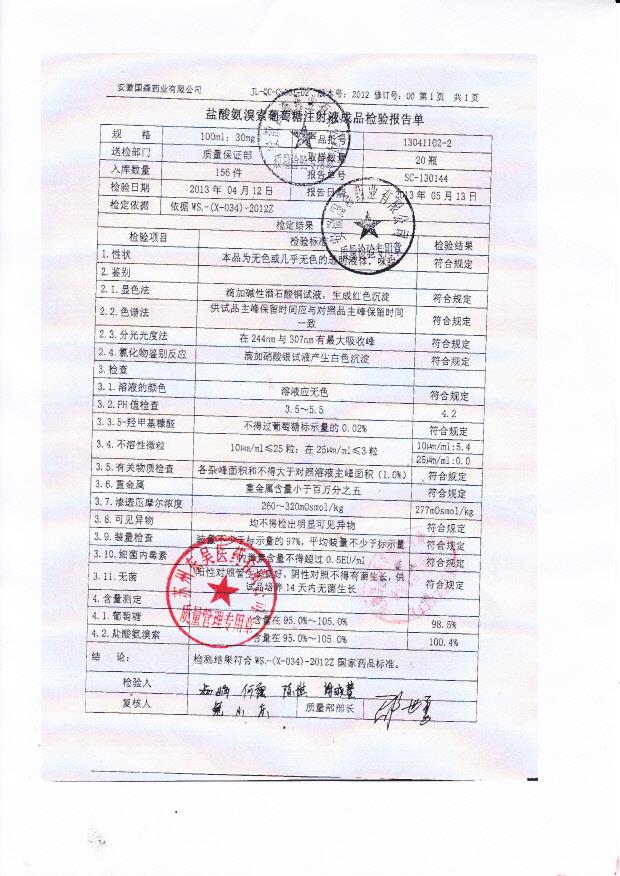 安徽国森药业有限公司 版本号：2012 修订号：00 第1页 共1页
盐酸氨溴索葡萄糖注射液成品检验报告单
规 格 100ml：30mg 产品批号 13041102-2
送检部门 质量保证部 取样数量 20瓶
入库数量 156件 报告单号 SC-130144
检验日期 2013年 04月12日 报告日期 2013年 05月13日
检定依据 依据WS₁-(X-034)-2012Z
检定结果
检验项目 检验标准 检验结果
1.性状 本品为无色或几乎无色的透明液体，味 符合规定
2.鉴别
2.1.显色法 滴加碱性酒石酸铜试液，生成红色沉淀 符合规定
2.2.色谱法 供试品主峰保留时间应与对照品主峰保留时间一致 符合规定
2.3.分光光度法 在244nm与307nm有最大吸收峰 符合规定
2.4.氯化物鉴别反应 滴加硝酸银试液产生白色沉淀 符合规定
3.检查
3.1.溶液的颜色 溶液应无色 符合规定
3.2.PH值检查 3.5~5.5 4.2
3.3.5-羟甲基糠酸 不得过葡萄糖标示量的0.02% 符合规定
3.4.不溶性微粒 10μm/ml≤25粒；在25μm/ml≤3粒 10μm/ml:5.4
25μm/ml:0.0
3.5.有关物质检查 各杂峰面积和不得大于对照溶液主峰面积（1.0%） 符合规定
3.6.重金属 重金属含量小于百万分之五 符合规定
3.7.渗透压摩尔浓度 260~320mOsmol/kg 277mOsmol/kg
3.8.可见异物 均不得检出明显可见异物 符合规定
3.9.装量检查 装量不少于标示量的97%，平均装量不少于标示量 符合规定
3.10.细菌内毒素 内毒素含量不得超过0.5EU/ml 符合规定
3.11.无菌 阳性对照管生长良好，阴性对照不得有菌生长，供
试品培养14天内无菌生长 符合规定
4.含量测定
4.1.葡萄糖 含量在95.0%~105.0% 98.5%
4.2.盐酸氨溴索 含量在95.0%~105.0% 100.4%
结 论： 检测结果符合WS₁-(X-034)-2012Z国家药品标准。
检验人
复核人 质量部部长
苏州东吴医药有限公司
质量管理专用章
质量检验专用章
安徽国森药业有限公司
质量检验专用章